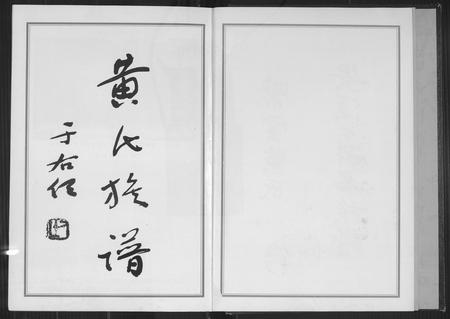 黃氏族譜
于右任